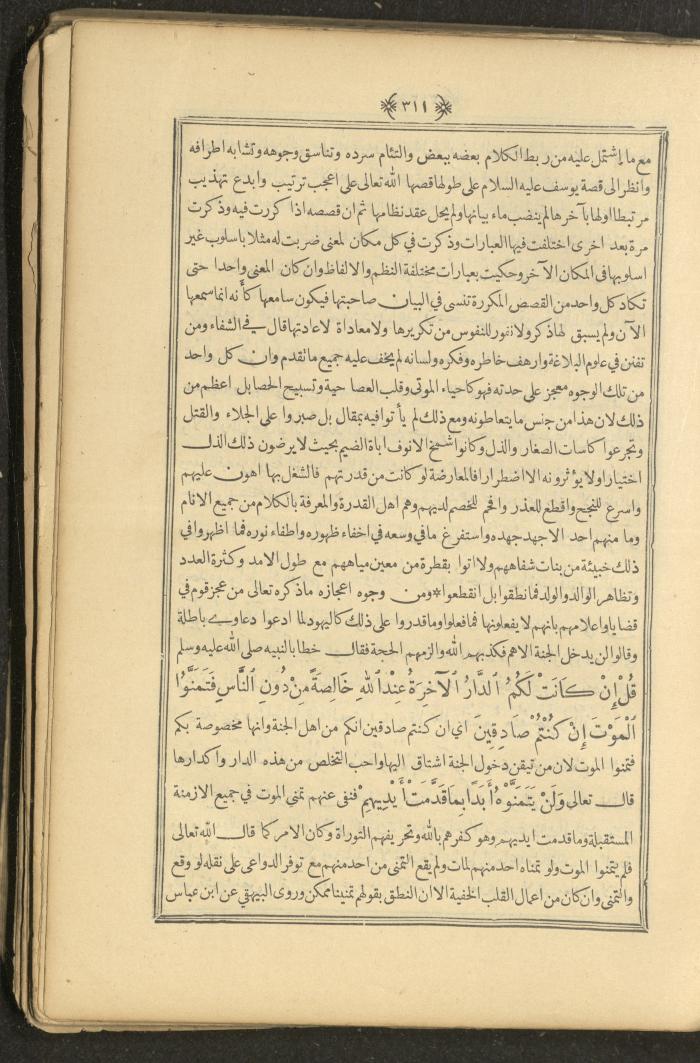 ٣١١
مع ما اشتمل عليه من ربط الكلام بعضه ببعض والتئام سرده وتناسق وجوهه وتشابه اطرافه
وانظر الى قصة يوسف عليه السلام على طولها قصها الله تعالى على اعجب ترتيب وابدع تهذيب
مرتبطا اولها بآخرها لم ينضب ماء بيانها ولم يحل عقد نظامها ثم ان قصصه اذا كررت فيه وذكرت
مرة بعد اخرى اختلفت فيها العبارات وذكرت في كل مكان لمعنى ضربت له مثلا باسلوب غير
اسلوبها فى المكان الآخر وحكيت بعبارات مختلفة النظم والالفاظ وان كان المعنى واحدا حتى
تكاد كل واحد من القصص المكررة تنسى في البيان صاحبتها فيكون سامعها كأنه انما سمعها
الآن ولم يسبق لها ذكر ولا نفور للنفوس من تكريرها ولا معاداة لاعادتها قال في الشفاء ومن
تفنن في علوم البلاغة وارهف خاطره وفكره ولسانه لم يخف عليه جميع ما تقدم وان كل واحد
من تلك الوجوه معجز على حدته فهو كاحياء الموتى وقلب العصا حية وتسبيح الحصا بل اعظم من
ذلك لان هذا من جنس ما يتعاطونه ومع ذلك لم يأتوا فيه بمقال بل صبروا على الجلاء والقتل
وتجرعوا كاسات الصغار والذل وكانوا شمخ الانوف اباة الضيم بحيث لا يرضون ذلك الذل
اختيارا ولا يؤثرونه الا اضطرارا فالمعارضة لو كانت من قدرتهم فالشغل بها اهون عليهم
واسرع للنجح واقطع للعذر وافحم للخصم لديهم وهم اهل القدرة والمعرفة بالكلام من جميع الانام
وما منهم احد الا جهد جهده واستفرغ ما في وسعه في اخفاء ظهوره واطفاء نوره فما اظهروا في
ذلك خبيئة من بنات شفاههم ولا اتوا بقطرة من معين مياههم مع طول الامد وكثرة العدد
وتظاهر الوالد والولد فما نطقوا بل انقطعوا * ومن وجوه اعجازه ما ذكره تعالى من عجز قوم في
قضايا واعلامهم بانهم لا يفعلونها فما فعلوا وما قدروا على ذلك كاليهود لما ادعوا دعاوى باطلة
وقالوا لن يدخل الجنة الا هم فكذبهم الله والزمهم الحجة فقال خطابا لنبيه صلى الله عليه وسلم
قُلْ إِنْ كَانَتْ لَكُمُ الدَّارُ الْآخِرَةُ عِنْدَ اللهِ خَالِصَةً مِنْ دُونِ النَّاسِ فَتَمَنَّوُا
الْمَوْتَ إِنْ كُنْتُمْ صَادِقِينَ اي ان كنتم صادقين انكم من اهل الجنة وانها مخصوصة بكم
فتمنوا الموت لان من تيقن دخول الجنة اشتاق اليها واحب التخلص من هذه الدار واكدارها
قال تعالى وَلَنْ يَتَمَنَّوْهُ أَبَدًا بِمَا قَدَّمَتْ أَيْدِيهِمْ فنفى عنهم تمنى الموت في جميع الازمنة
المستقبلة وما قدمت ايديهم وهو كفرهم بالله وتحريفهم التوراة وكان الامر كما قال الله تعالى
فلم يتمنوا الموت ولو تمناه احد منهم لمات ولم يقع التمنى من احد منهم مع توفر الدواعى على نقله لو وقع
والتمنى وان كان من اعمال القلب الخفية الا ان النطق بقولهم تمنينا ممكن وروى البيهقي عن ابن عباس